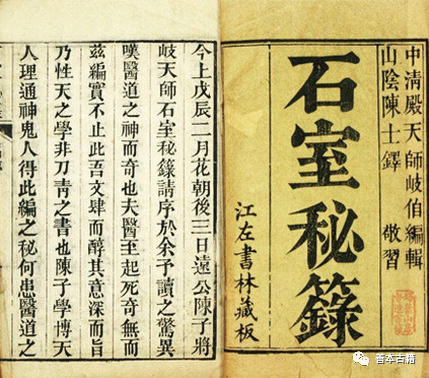 中清殿天師岐伯編輯
山陰陳士鐸 敬習
石室秘籙
江左書林藏板
今上戊辰二月花朝後三日遠公陳子將
岐天師石室秘籙請序於余予讀之驚異
嘆醫道之神而奇也夫醫至起死奇無而
茲編實不止此吾文肆而醇其意深而旨
乃性天之學非刀青之書也陳子學博天
人理通神鬼人得此編之秘何患醫道之
善本古籍